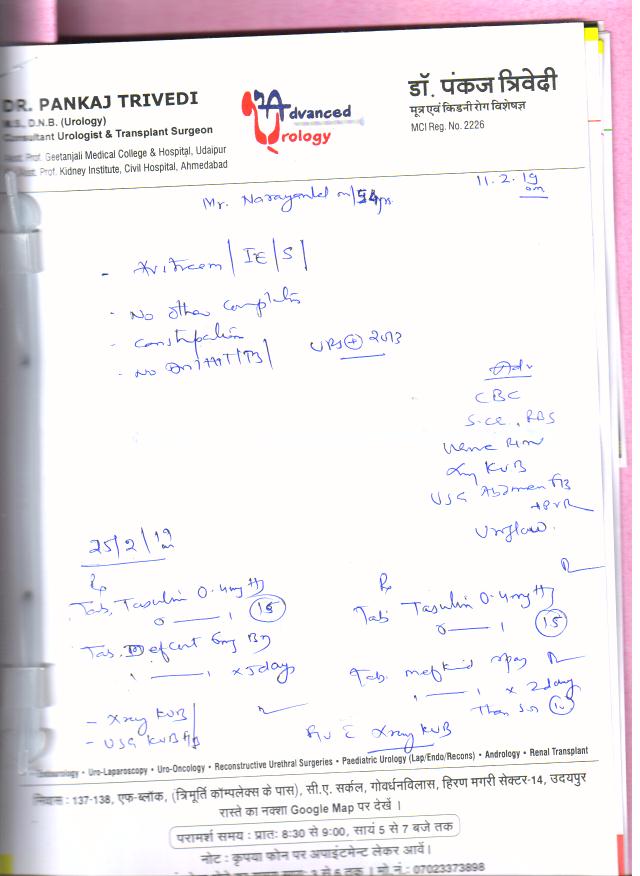 DR. PANKAJ TRIVEDI
M.S., D.N.B. (Urology)
Consultant Urologist & Transplant Surgeon
Asst. Prof. Geetanjali Medical College & Hospital, Udaipur
Asst. Prof. Kidney Institute, Civil Hospital, Ahmedabad
Advanced
Urology
डॉ. पंकज त्रिवेदी
मूत्र एवं किडनी रोग विशेषज्ञ
MCI Reg. No. 2226
11.2.19
Mr. Narayanlal m/54yrs
- No other complaints
- Constipation
- No DM/HTN/TB/
URS + 2013
Adv
CBC
S.cr, RBS
Urine R/m
Xray KUB
USG Abdomen FB
+PVR
Uroflow.
25/2/19
Rx
Tab. Tasulin 0.4mg
0 —— 1 (15)
Tab. Defcort 6mg
1 —— 1 x 5days
- Xray KUB
- USG KUB
Rx
Tab. Tasulin 0.4mg
0 —— 1 (15)
Tab.
1 —— 1 x 2days
Than SOS (10)
R/v c Xray KUB
• Uro-Laparoscopy • Uro-Oncology • Reconstructive Urethral Surgeries • Paediatric Urology (Lap/Endo/Recons) • Andrology • Renal Transplant
निवास : 137-138, एफ-ब्लॉक, (त्रिमूर्ति कॉम्पलेक्स के पास), सी.ए. सर्कल, गोवर्धनविलास, हिरण मगरी सेक्टर-14, उदयपुर
रास्ते का नक्शा Google Map पर देखें ।
परामर्श समय : प्रातः 8:30 से 9:00, सायं 5 से 7 बजे तक
नोट : कृपया फोन पर अपाइंटमेन्ट लेकर आवें।
मो.नं.: 07023373898